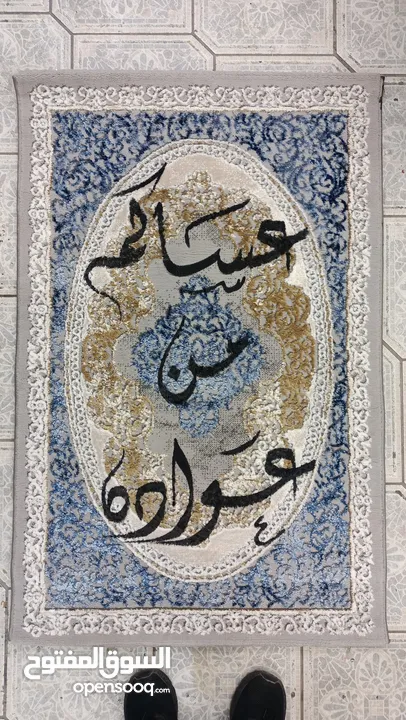 عساكم
من
عواده
السوق المفتوح
opensooq.com